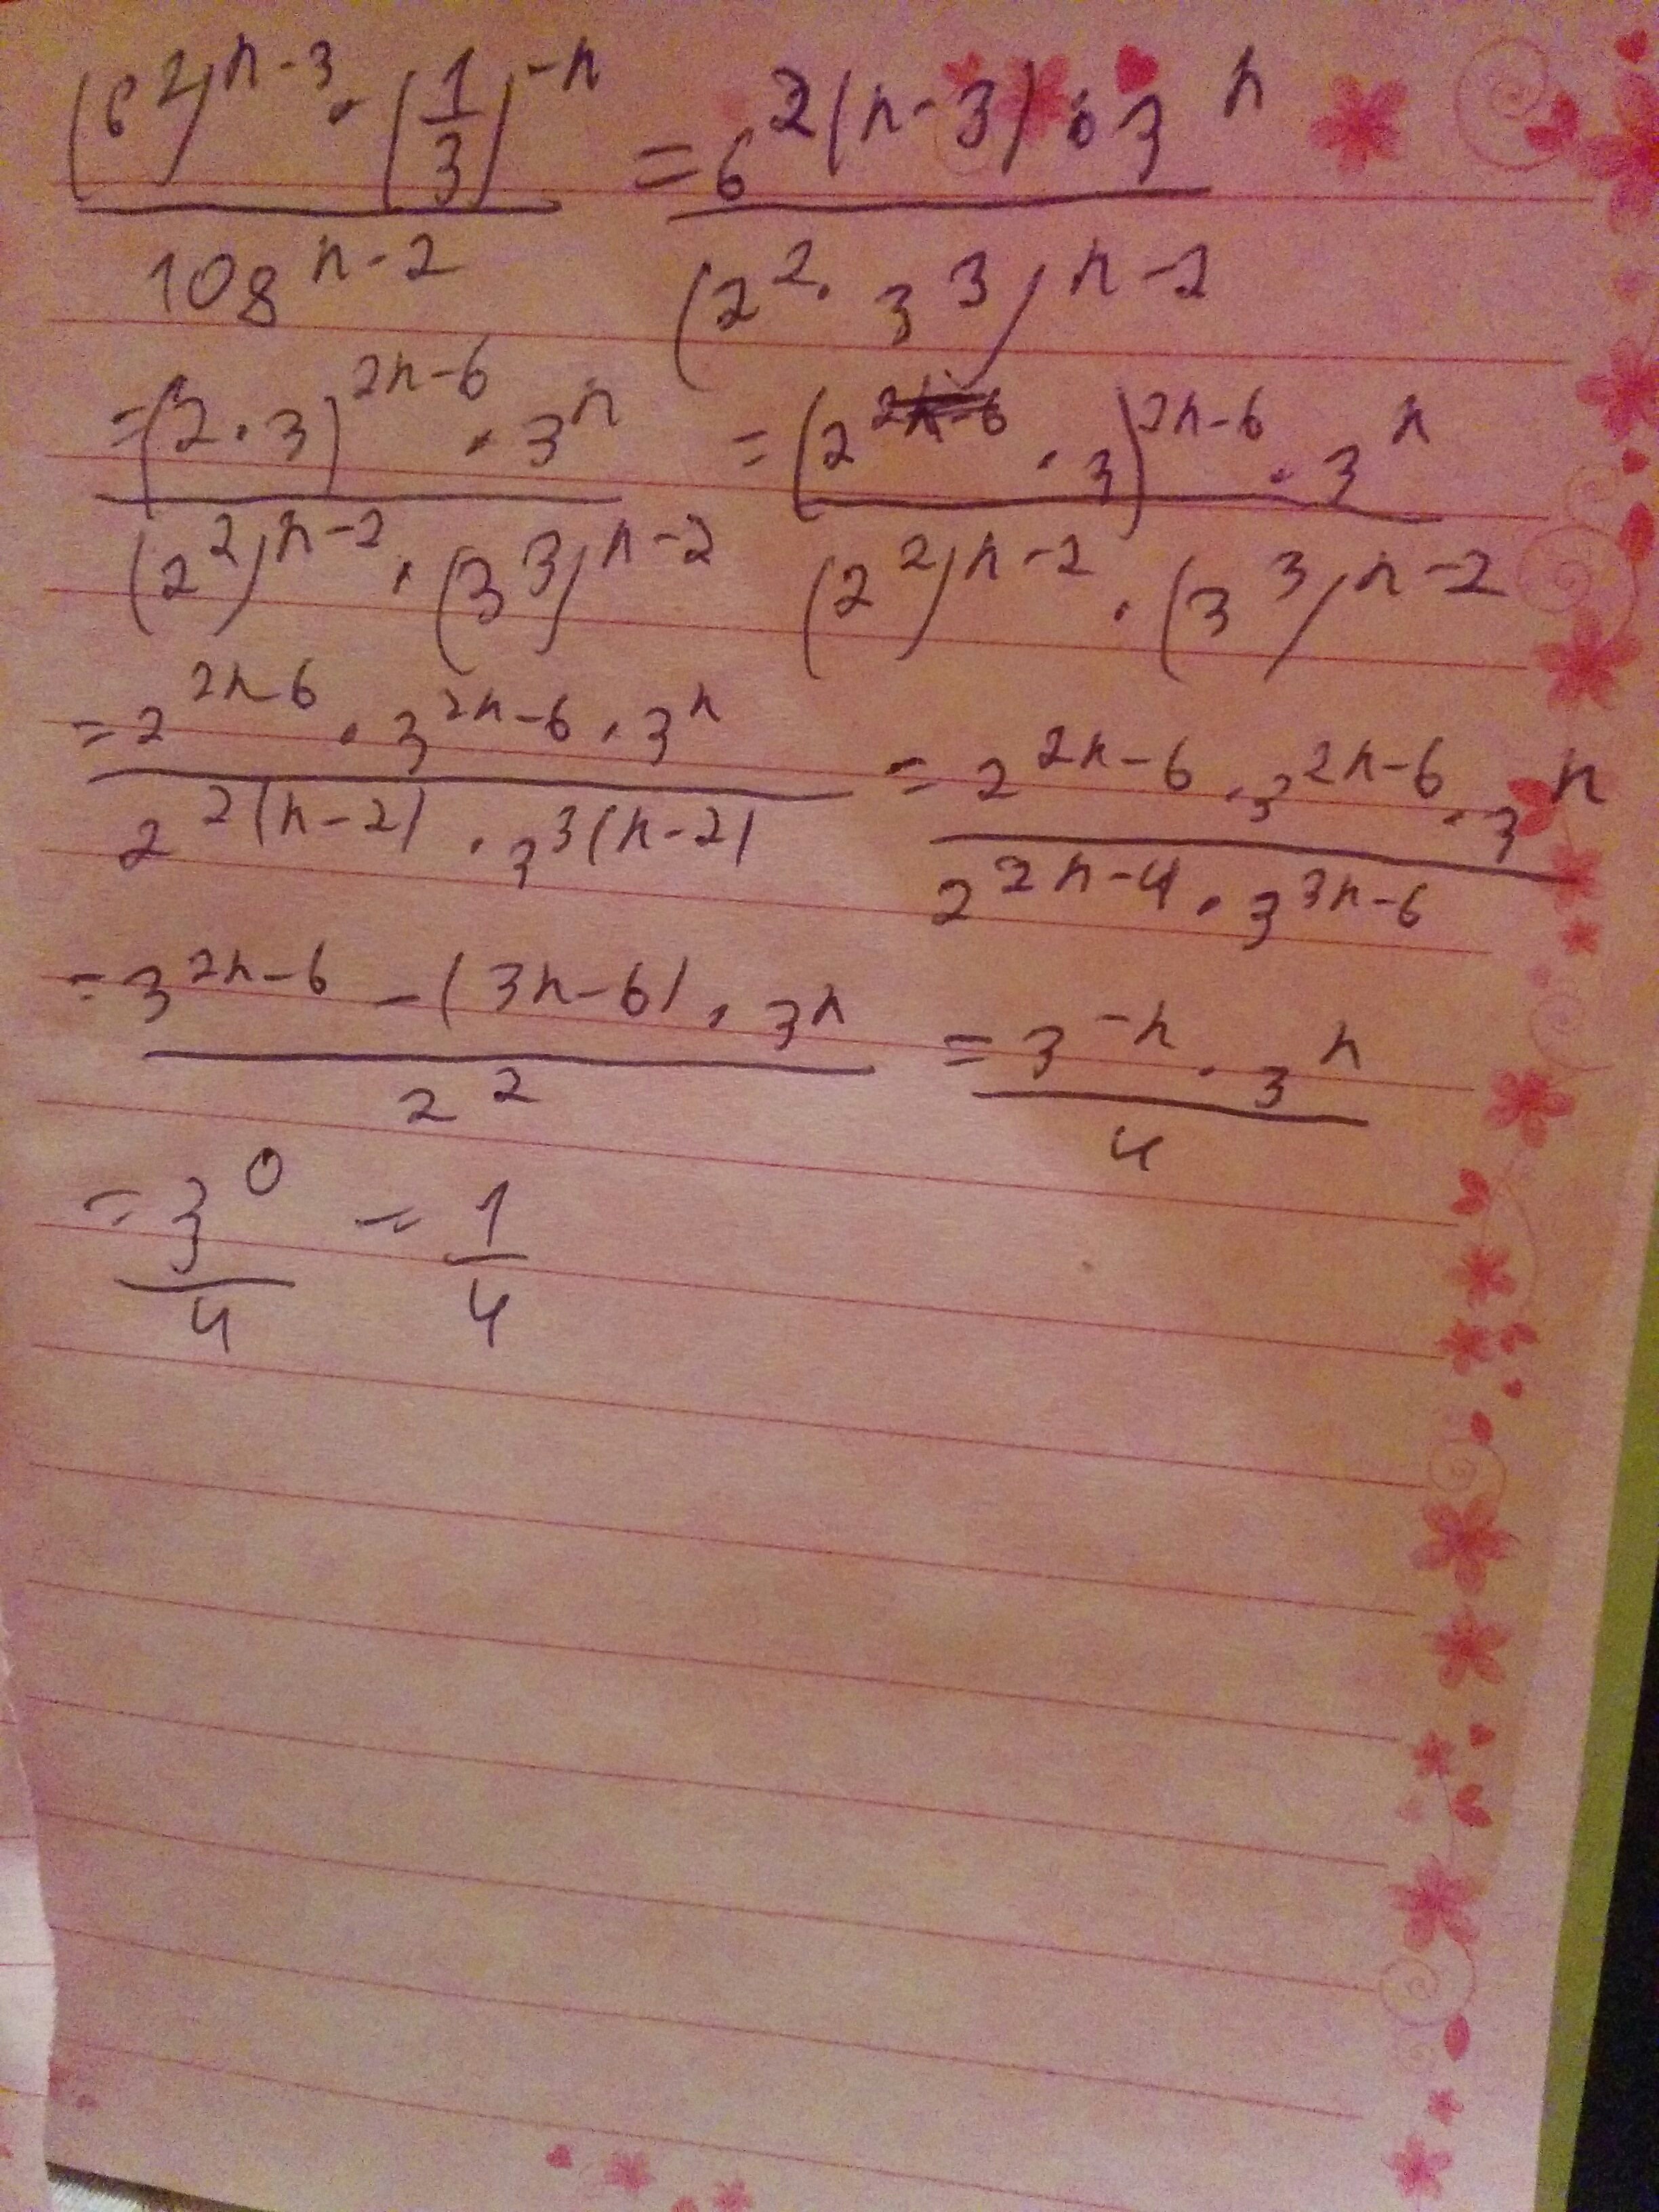 (6²)^(n-3) · (1/3)^(-n) / 108^(n-2) = 6^(2(n-3)) · 3^n / (2² · 3³)^(n-2)
= (2 · 3)^(2n-6) · 3^n / (2²)^(n-2) · (3³)^(n-2) = (2 · 3)^(2n-6) · 3^n / (2²)^(n-2) · (3³)^(n-2)
= 2^(2n-6) · 3^(2n-6) · 3^n / 2^(2(n-2)) · 3^(3(n-2)) = 2^(2n-6) · 3^(2n-6) · 3^n / 2^(2n-4) · 3^(3n-6)
= 3^(2n-6-(3n-6)) · 3^n / 2² = 3^(-n) · 3^n / 4
= 3⁰ / 4 = 1/4